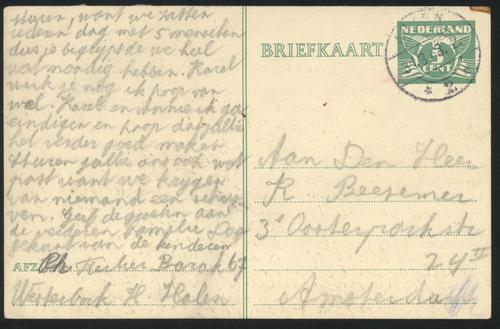 sturen, want we zitten
iederen dag met 5 menschen
dus je begrijpt de we heel
wat noodig hebben. Karel
werk je nog ik hoop van
wel. Karel en Annie ik ga
eindigen en hoop dat jullie
het verder goed maken
Sturen jullie ons ook wat
post want we krijgen
van niemand een
ven. Geef de groeten aan
de familie
van de kinderen
AFZ. Ph. Barak 67
Westerbork H. Halen
BRIEFKAART
NEDERLAND
5
CENT
Aan Den Heer
R.
3e Oosterparkstr
24 II
Amsterdam